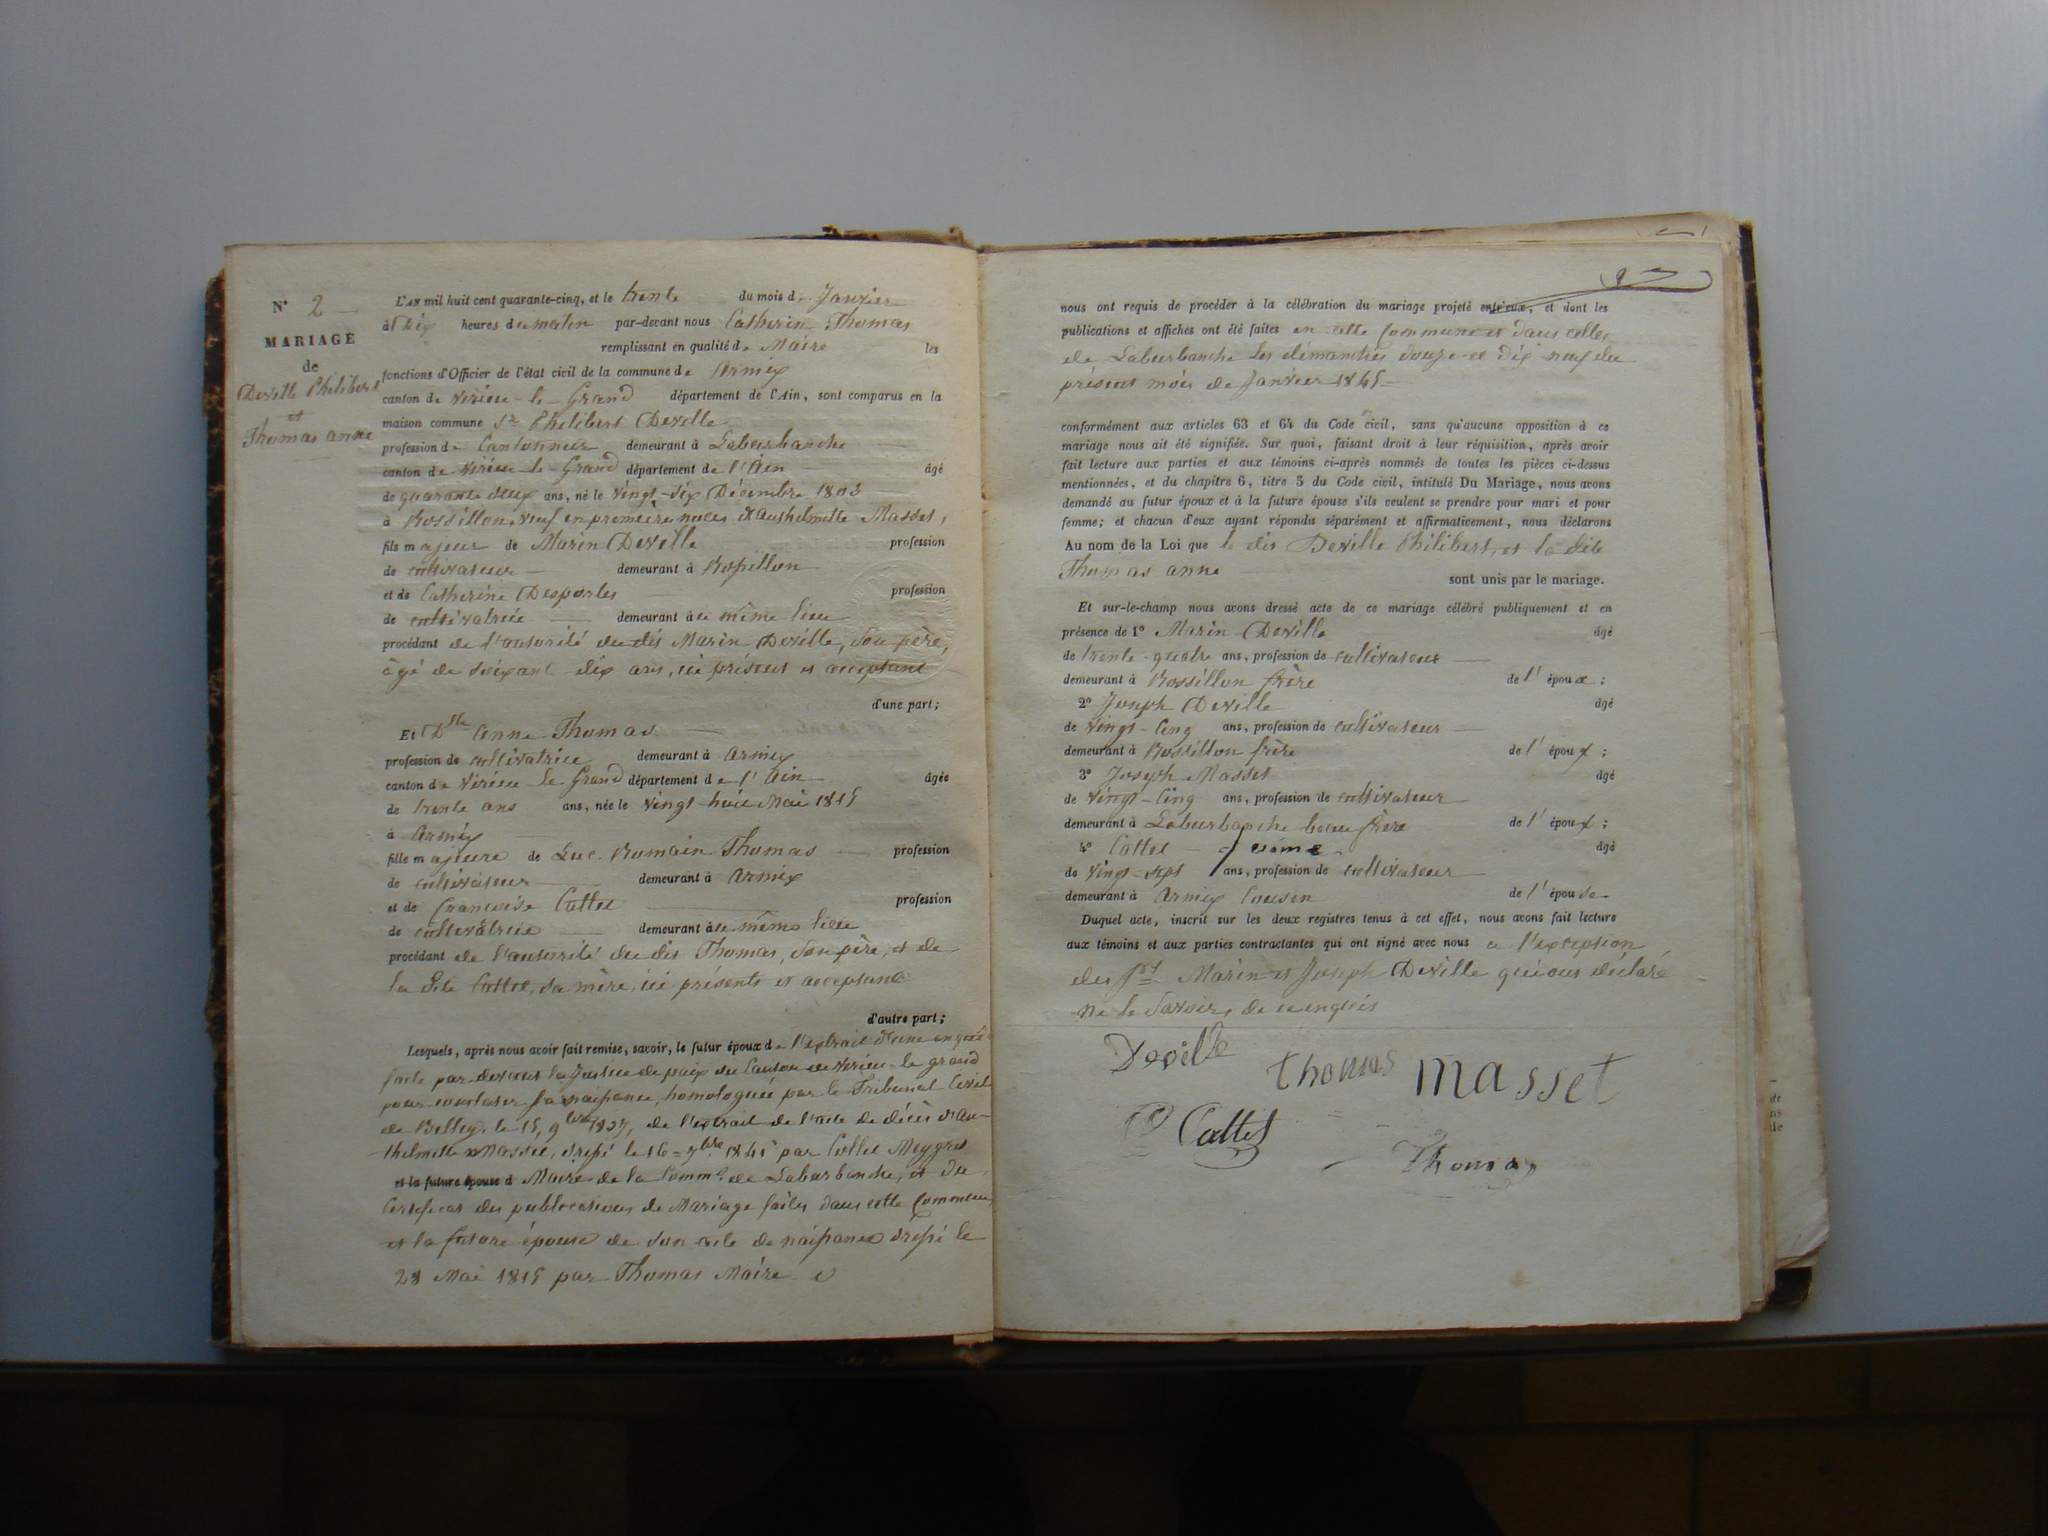 N° 2
MARIAGE
de
Deville Philibert
et
Thomas anne
L'AN mil huit cent quarante-cinq, et le trente du mois de Janvier
à dix heures du matin par-devant nous Catherin Thomas
remplissant en qualité de Maire les
fonctions d'Officier de l'état civil de la commune de Armix
canton de Virieu-le-Grand département de l'Ain, sont comparus en la
maison commune Sr Philibert Deville
profession de Cantonnier demeurant à Laburbanche
canton de Virieu-le-Grand département de l'Ain âgé
de quarante deux ans, né le vingt-six Décembre 1803
à Rossillon, veuf en premières noces d'Anthelmette Masset,
fils majeur de Marin Deville profession
de cultivateur demeurant à Rossillon
et de Catherine Desportes profession
de cultivatrice demeurant au même lieu
procédant de l'autorité du dit Marin Deville, son père,
âgé de soixante-dix ans, ici présent et acceptant
d'une part;
Et Dlle anne Thomas
profession de cultivatrice demeurant à armix
canton de Virieu-le-Grand département de l'Ain âgée
de trente ans ans, née le vingt-huit Mai 1815
à Armix
fille majeure de Luc-Romain Thomas profession
de cultivateur demeurant à Armix
et de Francoise Cattet profession
de cultivatrice demeurant au même lieu
procédant de l'autorité du dit Thomas, son père, et de
la dite Cattet, sa mère, ici présents et acceptant
d'autre part;
Lesquels, après nous avoir fait remise, savoir, le futur époux de l'extrait d'une enquête
faite par devant la Justice de paix du Canton de Virieu-le-grand
pour constater sa naissance, homologuée par le Tribunal Civil
de Belley, le 15, 9bre 1837, de l'extrait de l'acte de décès d'An-
thelmette Masset, dressé le 16 7bre 1841 par Collet Meygret
et la future épouse d Maire de la Comme de Laburbanche, et du
Certificat des publications de Mariage faites dans cette Commune,
et la future épouse de son acte de naissance dressé le
28 Mai 1815 par Thomas Maire
nous ont requis de procéder à la célébration du mariage projeté entr'eux, et dont les
publications et affiches ont été faites en cette Commune et dans celle
de Laburbanche les dimanches douze et dix neuf du
présent mois de Janvier 1845
conformément aux articles 63 et 64 du Code civil, sans qu'aucune opposition à ce
mariage nous ait été signifiée. Sur quoi, faisant droit à leur réquisition, après avoir
fait lecture aux parties et aux témoins ci-après nommés de toutes les pièces ci-dessus
mentionnées, et du chapitre 6, titre 5 du Code civil, intitulé Du Mariage, nous avons
demandé au futur époux et à la future épouse s'ils veulent se prendre pour mari et pour
femme; et chacun d'eux ayant répondu séparément et affirmativement, nous déclarons
Au nom de la Loi que le dit Deville Philibert, et la dite
Thomas anne
sont unis par le mariage.
Et sur-le-champ nous avons dressé acte de ce mariage célébré publiquement et en
présence de 1° Marin Deville âgé
de trente-quatre ans, profession de cultivateur
demeurant à Rossillon frère de l'époux;
2° Joseph Deville âgé
de vingt-cinq ans, profession de cultivateur
demeurant à Rossillon frère de l'époux;
3° Joseph Masset âgé
de vingt-cinq ans, profession de cultivateur
demeurant à Laburbanche beau frère de l'époux;
4° Cattet âgé
de vingt-sept ans, profession de cultivateur
demeurant à Armix Cousin de l'épouse
Duquel acte, inscrit sur les deux registres tenus à cet effet, nous avons fait lecture
aux témoins et aux parties contractantes qui ont signé avec nous à l'exception
des Marin et Joseph Deville qui ont déclaré
ne le savoir, de ce enquis
Deville Thomas Masset
Cattet
Thomas